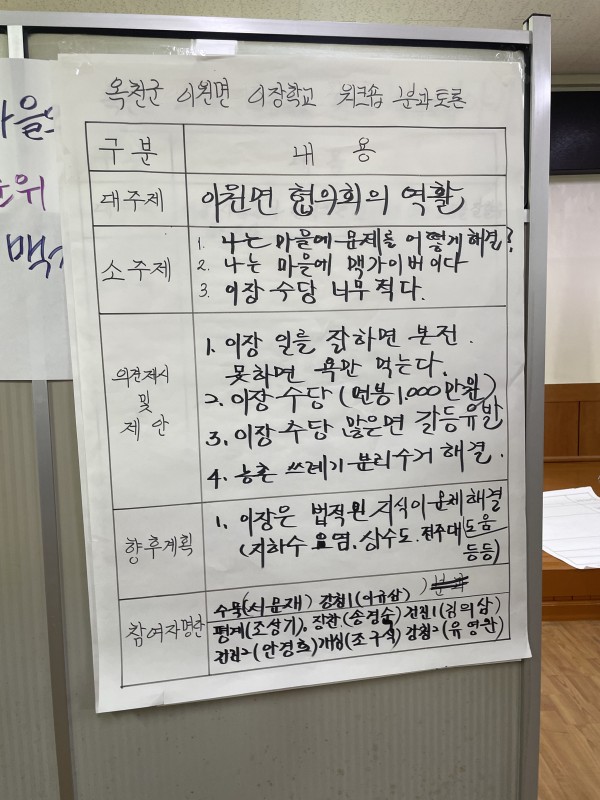 옥천군 이원면 이장학교 워크숍 분과토론
구분
내 용
대주제
이원면 협의회의 역활
소주제
1. 나는 마을에 문제를 어떻게 해결?
2. 나는 마을에 맥가이버이다
3. 이장 수당 너무 적다.
의견제시
및
제 안
1. 이장 일을 잘하면 본전.
못하면 욕만 먹는다.
2. 이장 수당 (연봉 1,000만원)
3. 이장 수당 많은면 갈등유발
4. 농촌 쓰레기 분리수거 해결.
향후계획
1. 이장은 법적인 지식이 문제 해결
(지하수 오염. 상수도. 전주대 도움
등등)
참여자명단
수묵(서문재) 강청1(이규삼)
평계(조성기). 장찬(송경숙) 건진1(김의상)
건진2(안경희) 개심(조구식) 강청2(유영완)
마을
순위
맥가